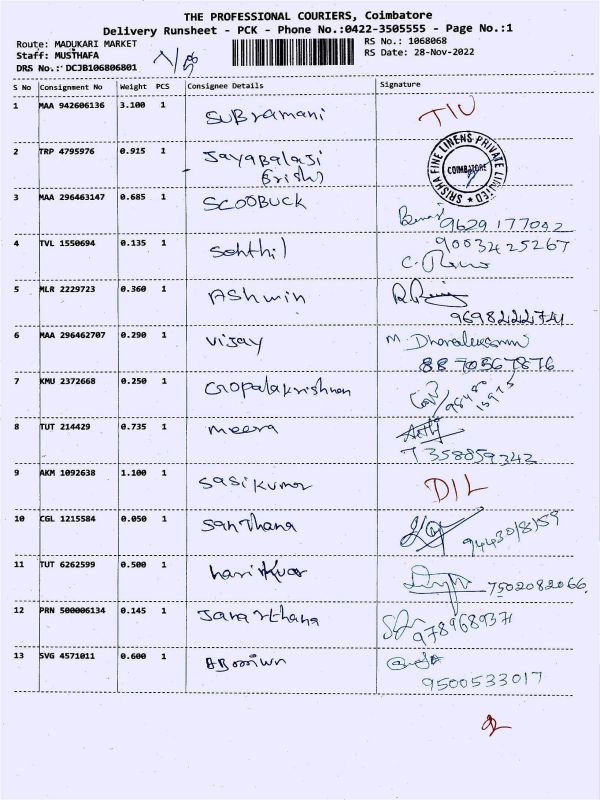 THE PROFESSIONAL COURIERS, Coimbatore
Delivery Runsheet - PCK - Phone No.:0422-3505555 - Page No.:1
Route: MADUKARI MARKET RS No.: 1068068
Staff: MUSTHAFA RS Date: 28-Nov-2022
DRS No.: DCJB106806801
S No Consignment No Weight PCS Consignee Details Signature
1 MAA 942606136 3.100 1 Subramani TIU
2 TRP 4795976 0.915 1 Jayabalaji
SRISHA FINE LINENS PRIVATE LIMITED
COIMBATORE
3 MAA 296463147 0.685 1 SCOOBUCK
9629177042
4 TVL 1550694 0.135 1 Senthil 9003425267
5 MLR 2229723 0.360 1 Ashwin
9698222741
6 MAA 296462707 0.290 1 Vijay
8870567876
7 KMU 2372668 0.250 1 Gopalakrishnan
8 TUT 214429 0.735 1 meera
7358859342
9 AKM 1092638 1.100 1 Sasikumar DIL
10 CGL 1215584 0.050 1 Santhana 9443018159
11 TUT 6262599 0.500 1 7502082066
12 PRN 500006134 0.145 1 Janarthana
13 SVG 4571011 0.600 1
9500533017